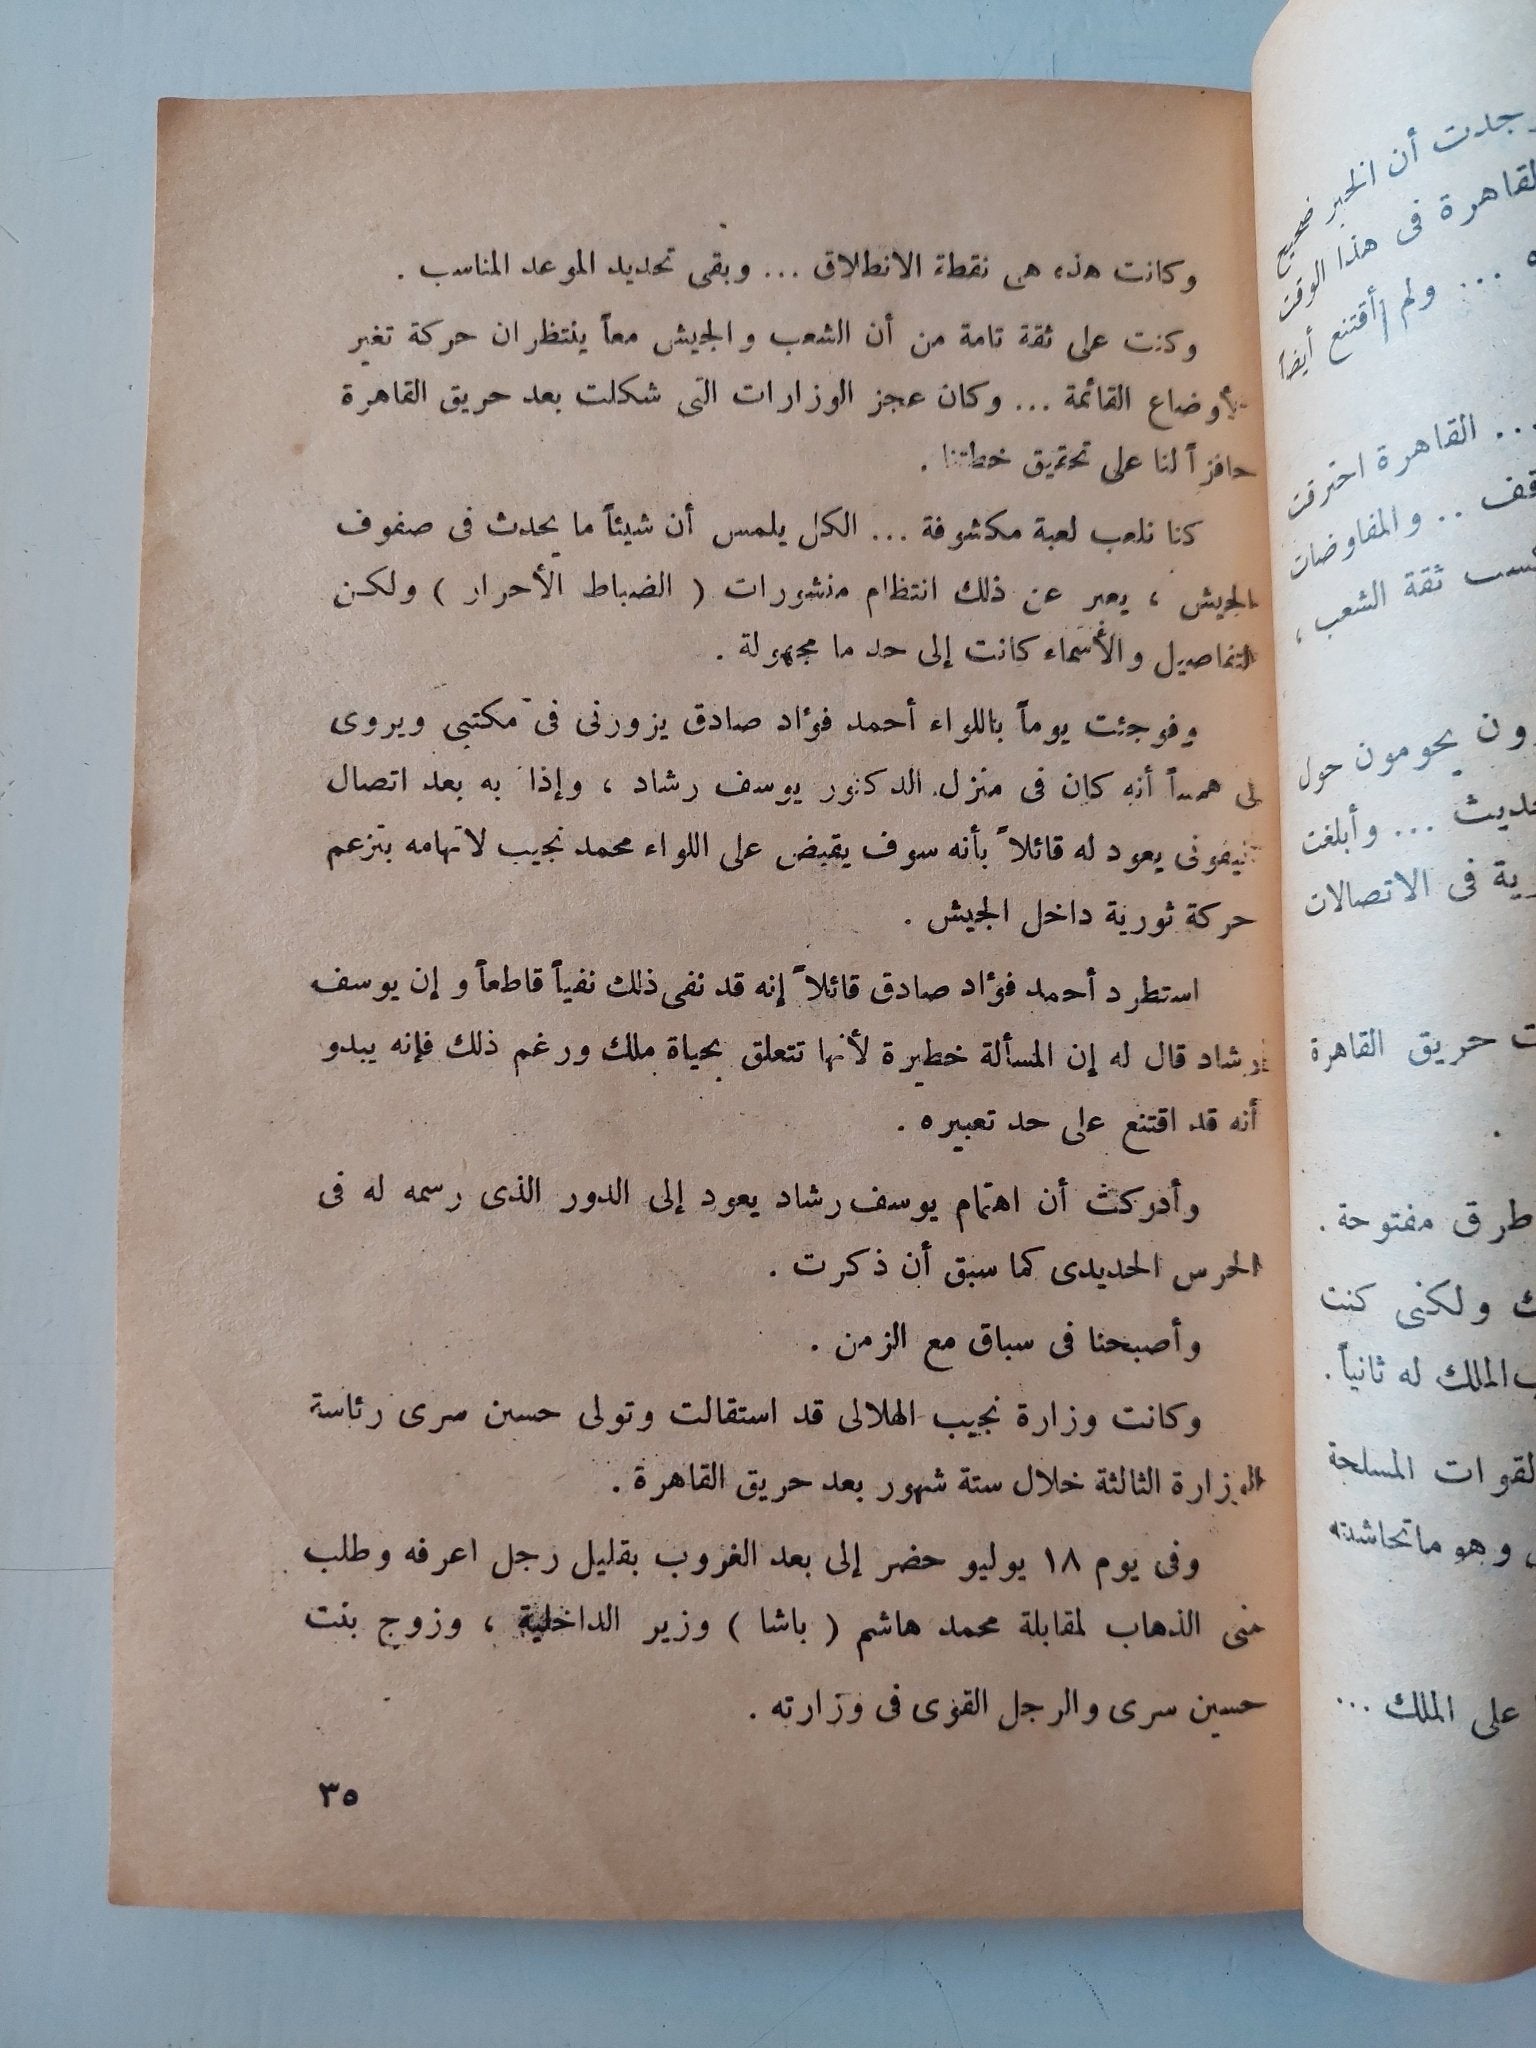 وكانت هذه هى نقطة الانطلاق ... وبقى تحديد الموعد المناسب .
وكنت على ثقة تامة من أن الشعب والجيش معاً ينتظران حركة تغير
الأوضاع القائمة ... وكان عجز الوزارات التى شكلت بعد حريق القاهرة
حافزاً لنا على تحقيق خطتنا .
كنا نلعب لعبة مكشوفة ... الكل يلمس أن شيئاً ما يحدث فى صفوف
الجيش ، يعبر عن ذلك انتظام منشورات ( الضباط الأحرار ) ولكن
التفاصيل والأسماء كانت إلى حد ما مجهولة .
وفوجئت يوماً باللواء أحمد فؤاد صادق يزورنى فى مكتبى ويروى
لى همساً أنه كان فى منزل الدكتور يوسف رشاد ، وإذا به بعد اتصال
تليفونى يعود له قائلاً بأنه سوف يقبض على اللواء محمد نجيب لاتهامه بتزعم
حركة ثورية داخل الجيش .
استطرد أحمد فؤاد صادق قائلاً إنه قد نفى ذلك نفياً قاطعاً وإن يوسف
رشاد قال له إن المسألة خطيرة لأنها تتعلق بحياة ملك ورغم ذلك فإنه يبدو
أنه قد اقتنع على حد تعبيره .
وأدركت أن اهتمام يوسف رشاد يعود إلى الدور الذى رسمه له فى
الحرس الحديدى كما سبق أن ذكرت .
وأصبحنا فى سباق مع الزمن .
وكانت وزارة نجيب الهلالى قد استقالت وتولى حسين سرى رئاسة
الوزارة الثالثة خلال ستة شهور بعد حريق القاهرة .
وفى يوم ١٨ يوليو حضر إلى بعد الغروب بقليل رجل اعرفه وطلب
منى الذهاب لمقابلة محمد هاشم ( باشا ) وزير الداخلية ، وزوج بنت
حسين سرى والرجل القوى فى وزارته .
٣٥
وجدت أن الخبر صحيح
القاهرة فى هذا الوقت
... ولم أقتنع أيضاً
... القاهرة احترقت
.. والمفاوضات
ثقة الشعب ،
يحومون حول
... وأبلغت
فى الاتصالات
حريق القاهرة
طرق مفتوحة .
ولكنى كنت
الملك له ثانياً .
القوات المسلحة
وهو ماتحاشته
على الملك ...